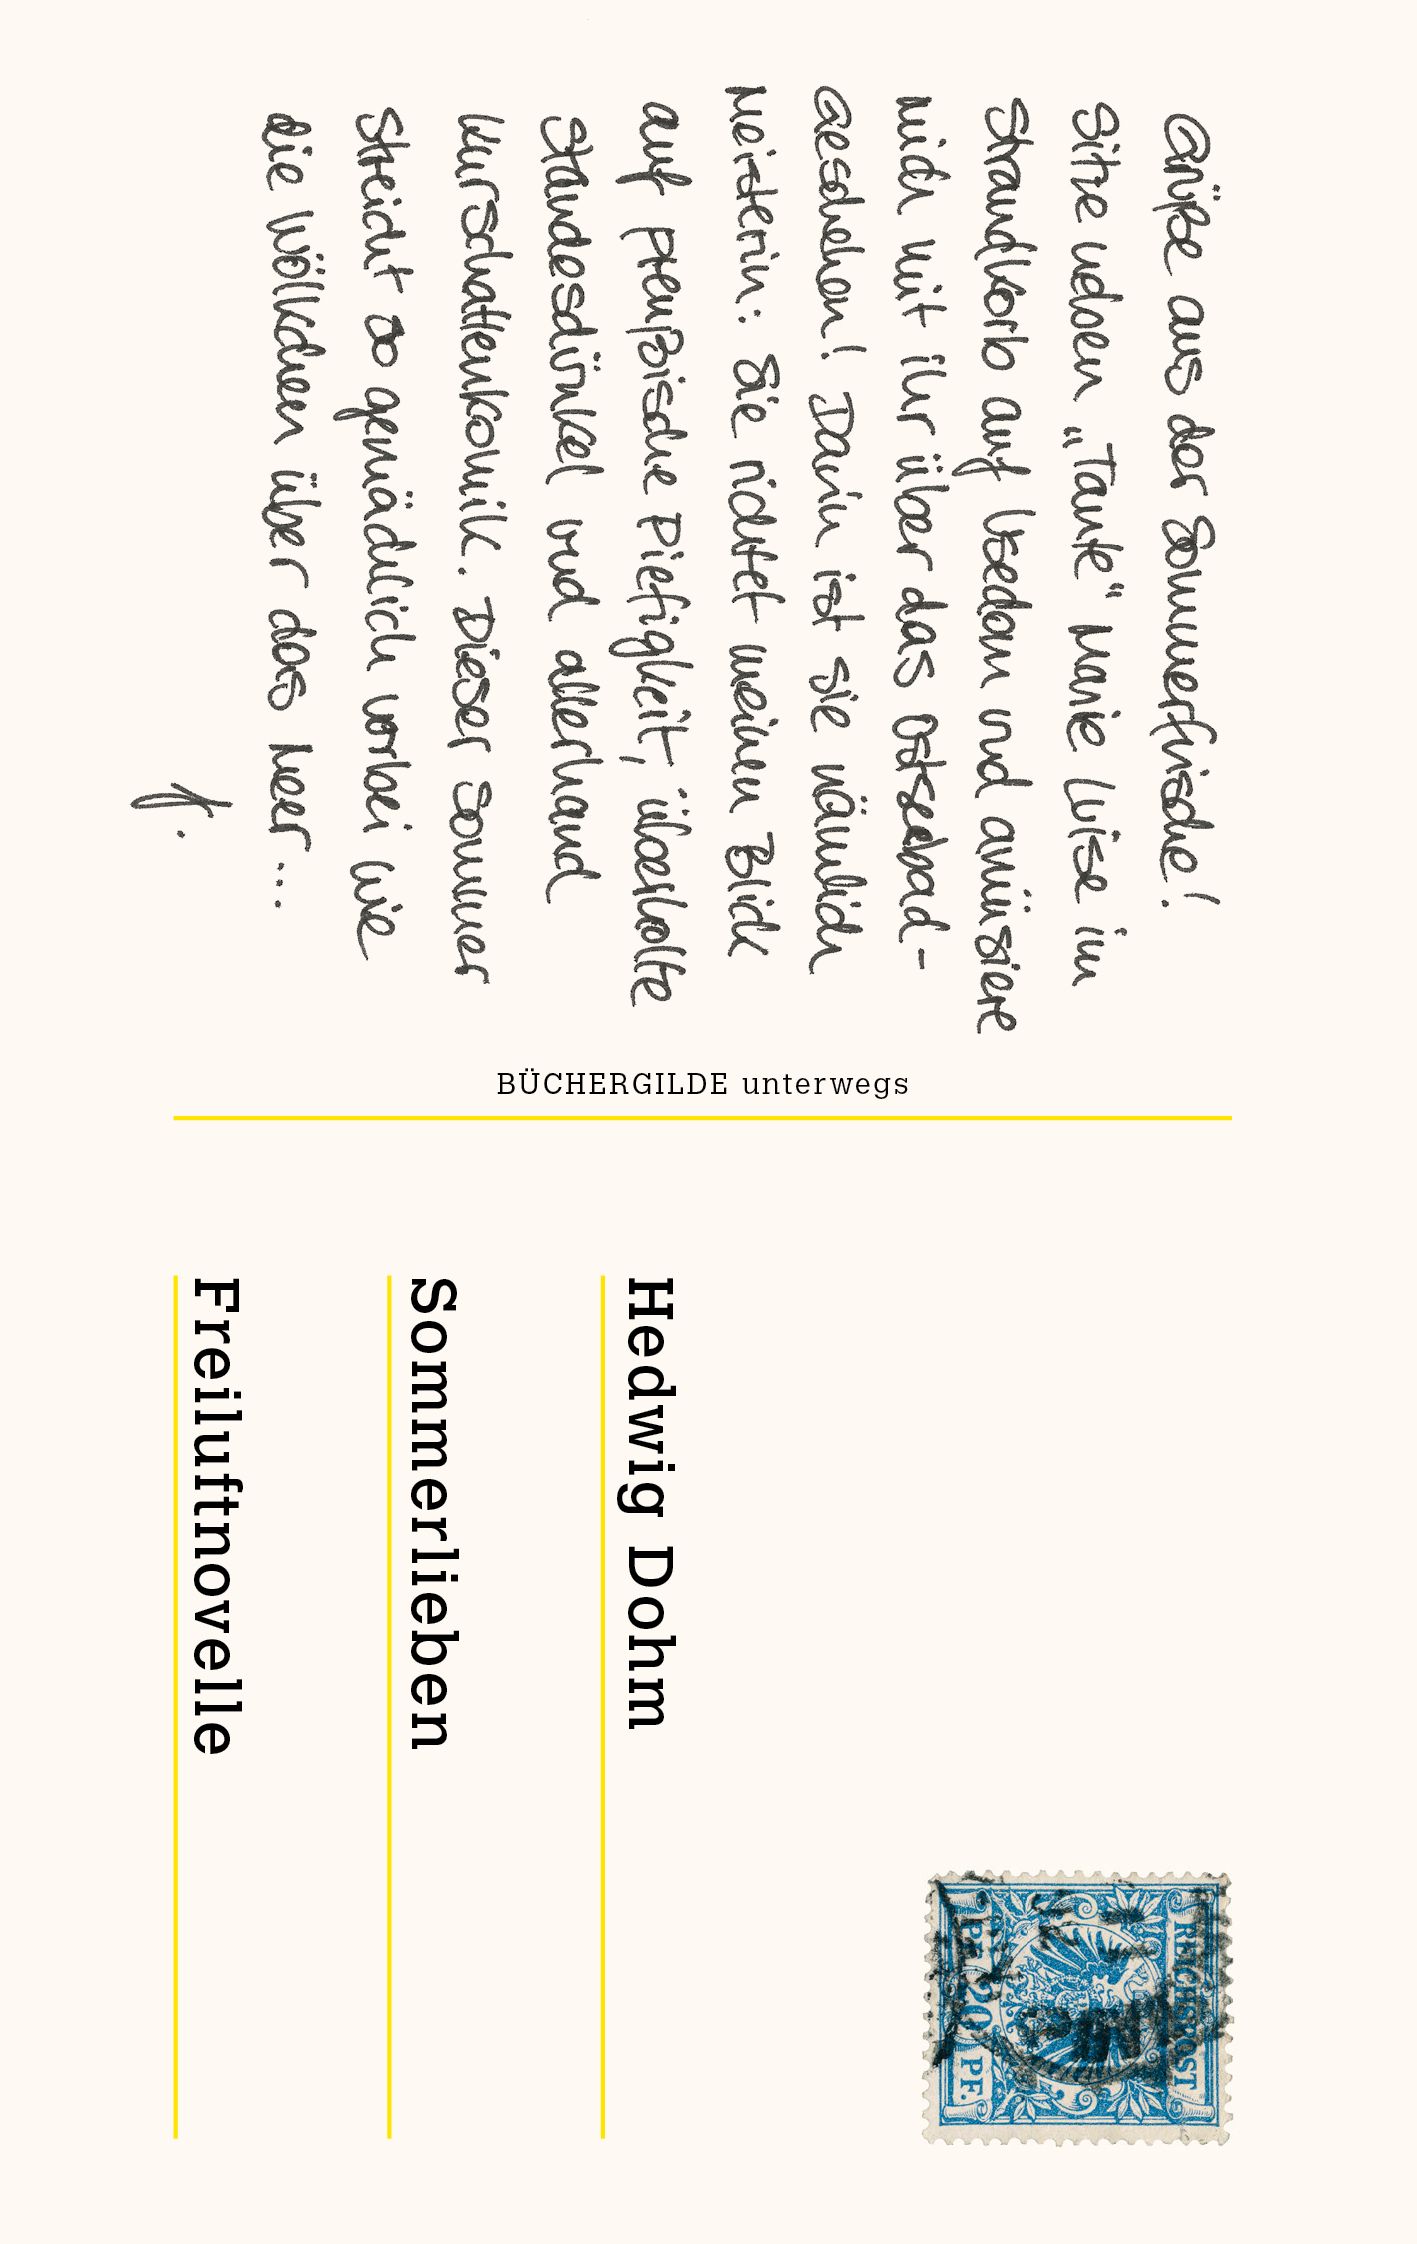 Grüße aus der Sommerfrische!
Sitze neben „Tante“ Marie Luise im
Strandkorb auf Usedom und amüsiere
mich mit ihr über das Ostseebad-
Geschehen! Darin ist sie nämlich
Meisterin: Sie richtet meinen Blick
auf preußische Piefigkeit, überholte
Standesdünkel und allerhand
Kurschattenkomik. Dieser Sommer
streicht so gemächlich vorbei wie
die Wölkchen über das Meer...
J.
BÜCHERGILDE unterwegs
Hedwig Dohm
Sommerlieben
Freiluftnovelle
REICHSPOST
PF. 20 PF.